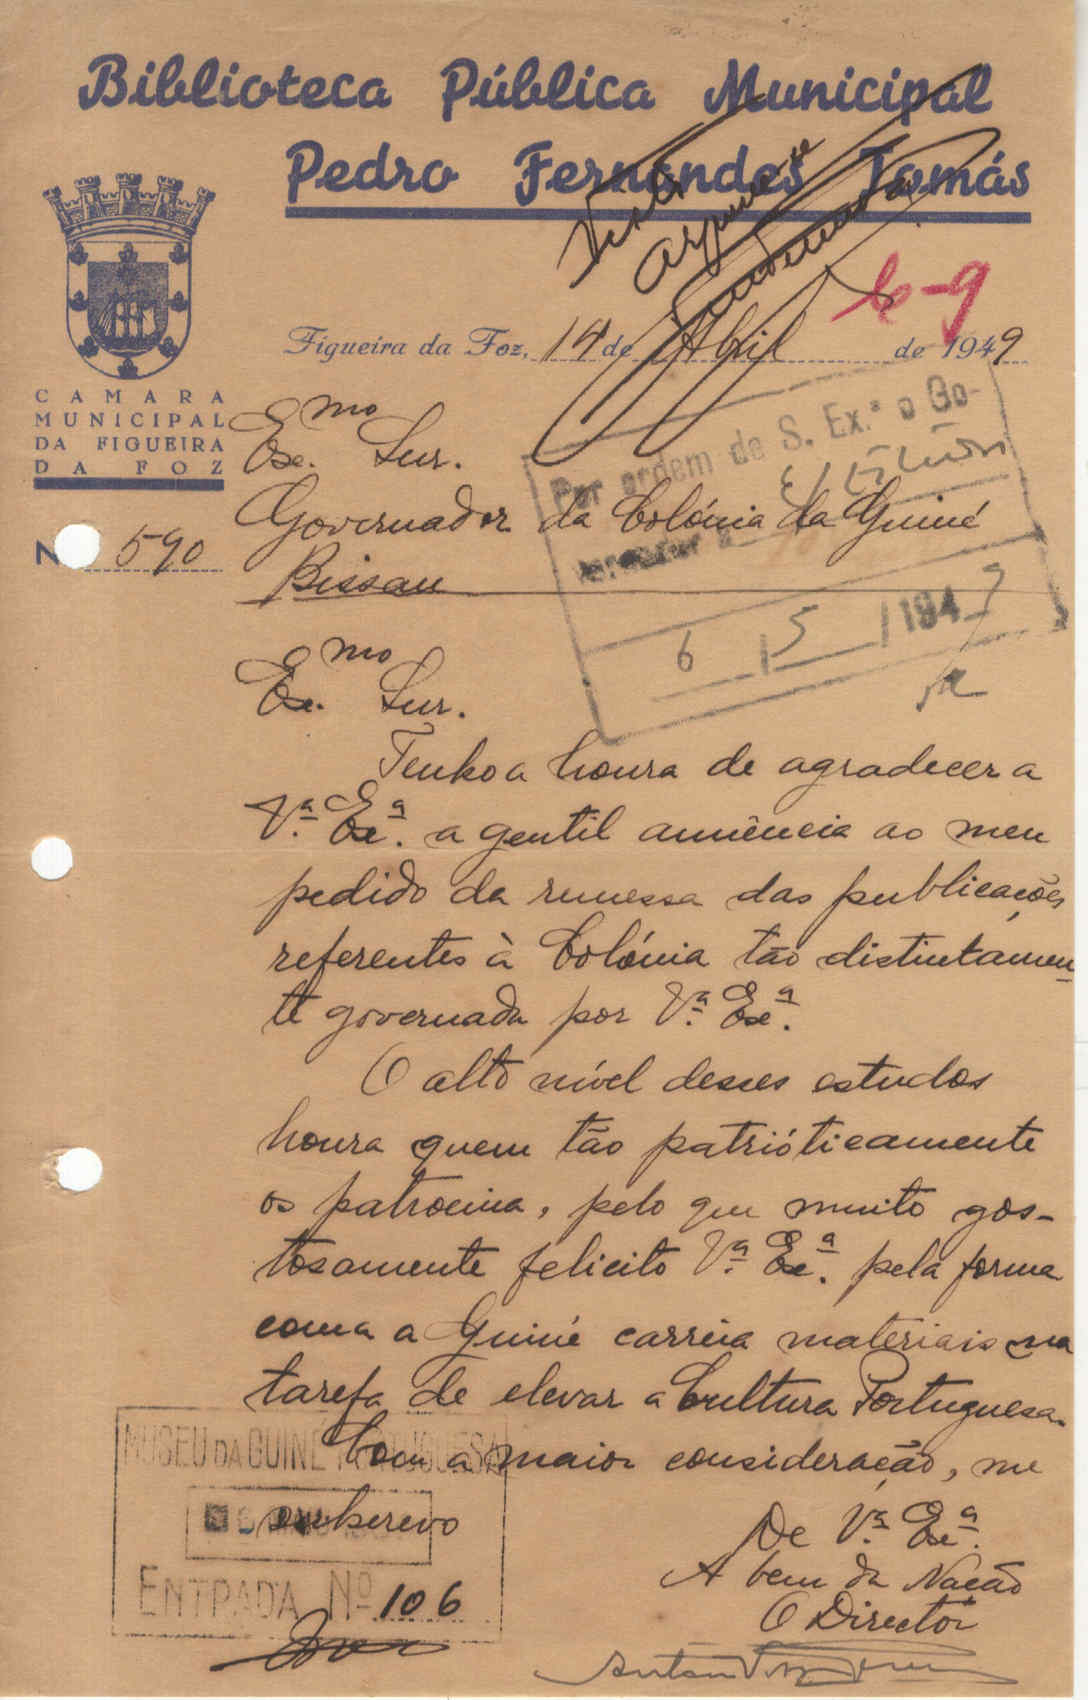 Biblioteca Pública Municipal
Pedro Fernandes Tomás
Visto
Arquive-se
6-9
Figueira da Foz, 14 de Abril de 1949
CAMARA
MUNICIPAL
DA FIGUEIRA
DA FOZ
Nº 590
Exmo. Snr.
Governador da Colónia da Guiné
Bissau
Por ordem de S. Ex.ª o Go-
vernador
6 / 5 / 1949
Exmo. Snr.
Tenho a honra de agradecer a
V.ª Ex.ª a gentil anuência ao meu
pedido da remessa das publicações
referentes à Colónia tão distintamen-
te governada por V.ª Ex.ª.
O alto nível desses estudos
honra quem tão patriòticamente
os patrocina, pelo que muito gos-
tosamente felicito V.ª Ex.ª pela forma
como a Guiné carreia materiais na
tarefa de elevar a Cultura Portuguesa.
Com a maior consideração, me
subscrevo
De V.ª Ex.ª
A bem da Nação
O Director
MUSEU DA GUINÉ PORTUGUESA
ENTRADA Nº 106